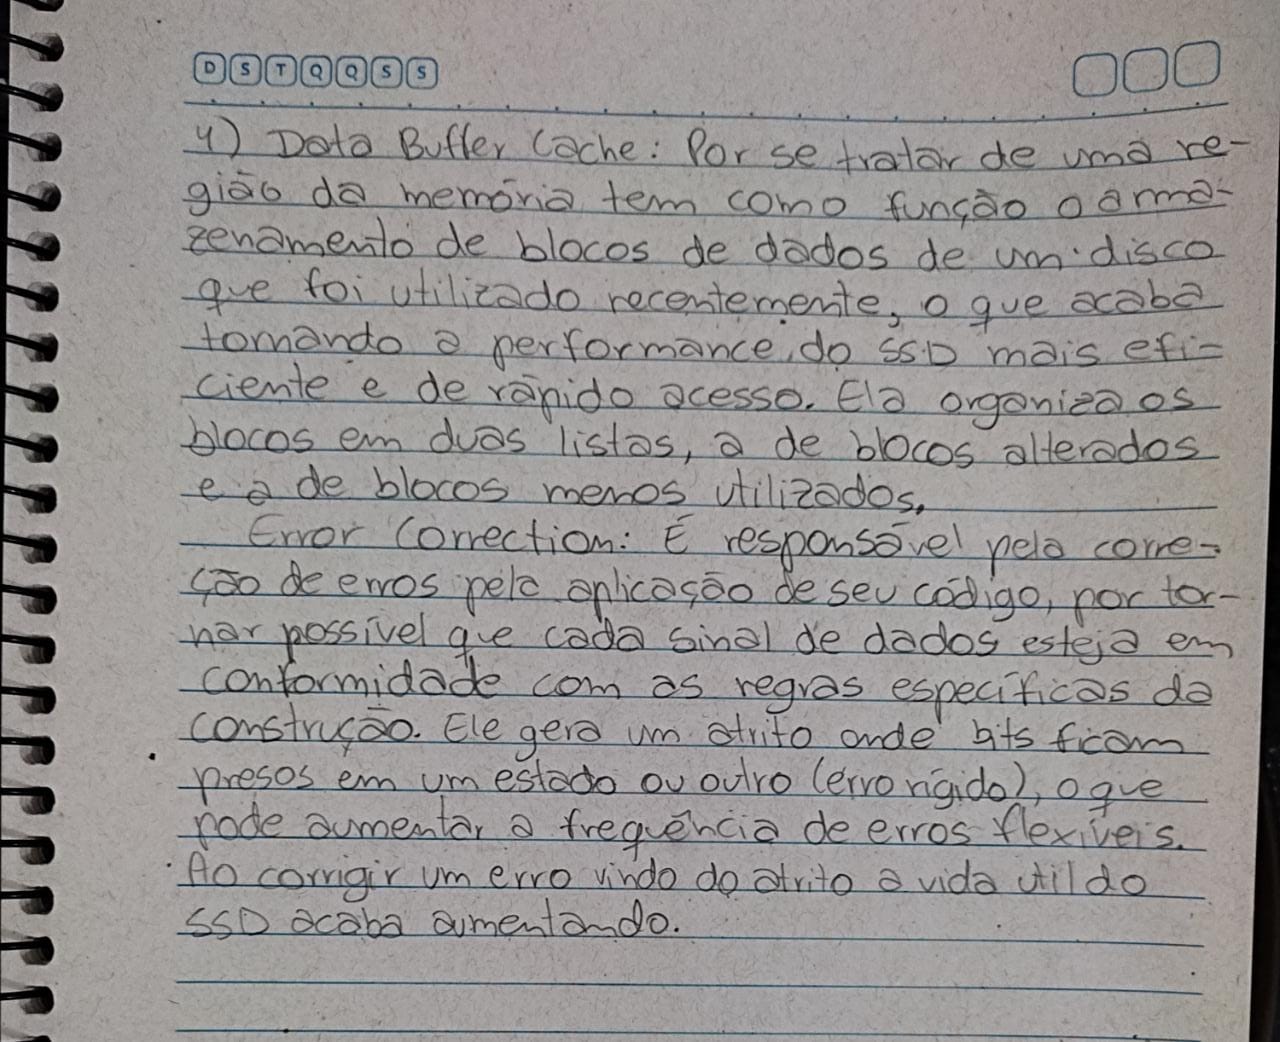 D S T Q Q S S
4) Data Buffer Cache: Por se tratar de uma re-
gião da memória tem como função o arma-
zenamento de blocos de dados de um disco
que foi utilizado recentemente, o que acaba
tornando a performance do SSD mais efi-
ciente e de rápido acesso. Ela organiza os
blocos em duas listas, a de blocos alterados
e a de blocos menos utilizados,
Error Correction: É responsável pela corre-
ção de erros pela aplicação de seu código, por tor-
nar possível que cada sinal de dados esteja em
conformidade com as regras específicas da
construção. Ele gera um atrito onde bits ficam
presos em um estado ou outro (erro rígido), o que
pode aumentar a frequência de erros flexíveis.
Ao corrigir um erro vindo do atrito a vida útil do
SSD acaba aumentando.